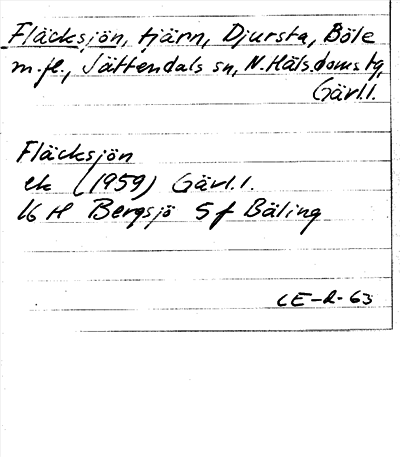 Fläcksjön, tjärn, Djursta, Böle
m.fl., Jättendals sn, N. Häls. doms. tg,
Gävl.l.
Fläcksjön
ek (1959) Gävl.l.
16 H Bergsjö 5 f Bäling
CE-R-63